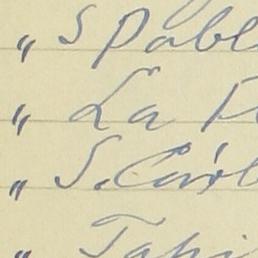 " S Pabl
" La P
" S. Carl
" Tapi